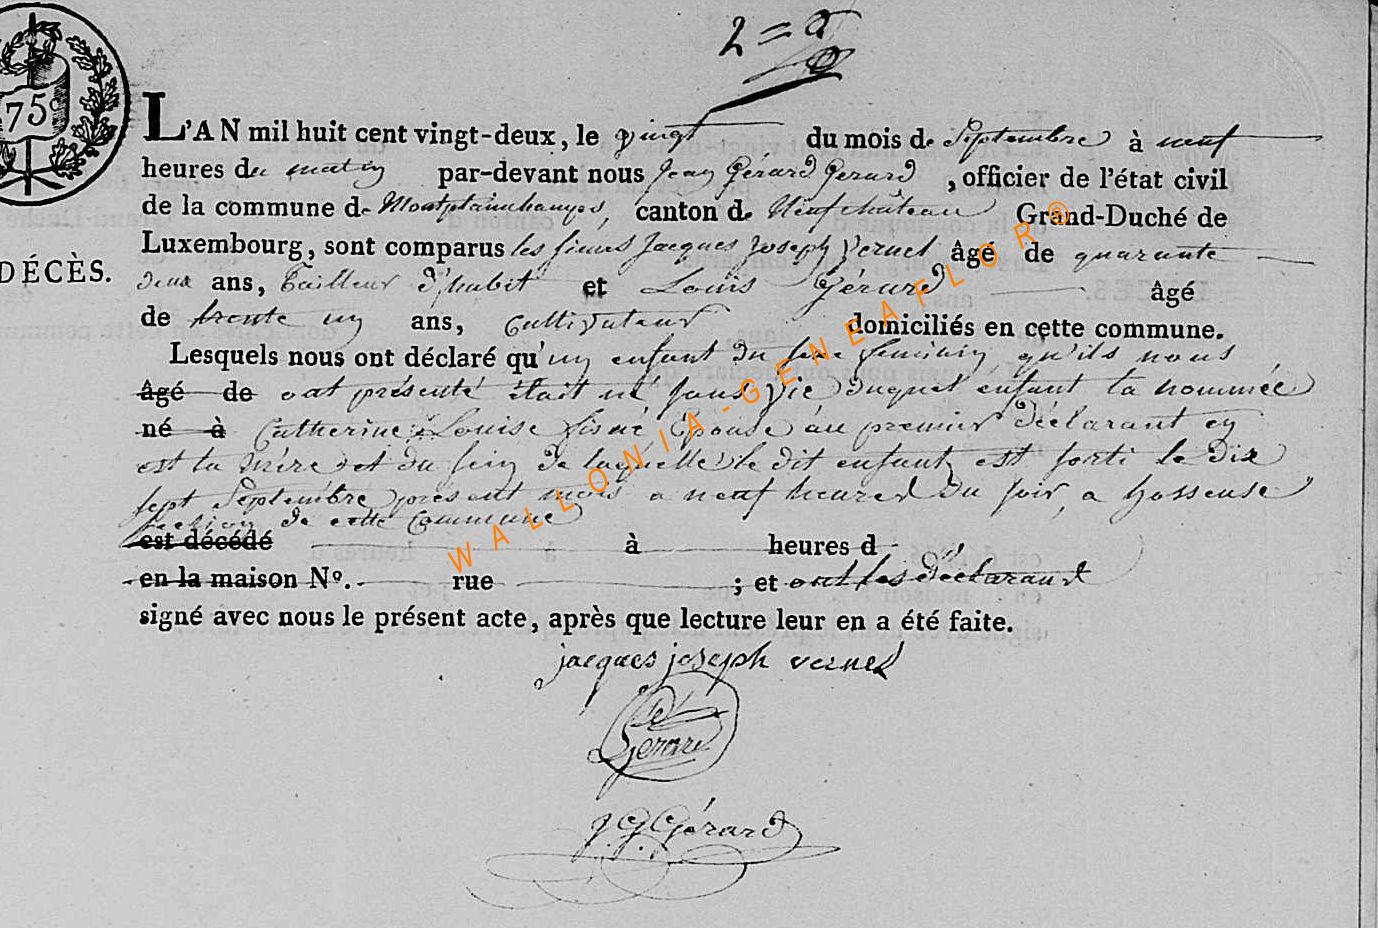 2 = d
75c
L'AN mil huit cent vingt-deux, le vingt du mois de Septembre à neuf
heures du matin par-devant nous Jean Gérard Gerard, officier de l'état civil
de la commune de Montplainchamps, canton de Neufchâteau Grand-Duché de
Luxembourg, sont comparus les sieurs Jacques Joseph Vernel âgé de quarante
DÉCÈS.
deux ans, Tailleur d'habit et Louis Gérard âgé
de trente un ans, Cultivateur domiciliés en cette commune.
Lesquels nous ont déclaré qu'un enfant du sexe feminin qu'ils nous
âgé de ont présenté était né sans vie duquel enfant la nommée
né à Catherine Louise Épouse au premier déclarant en
est la mère et du sein de laquelle le dit enfant est sorti le dix
sept Septembre présent mois a neuf heures du soir, a hosseuse
section de cette Commune
est décédé à heures d
en la maison No. rue ; et ont les déclarans
signé avec nous le présent acte, après que lecture leur en a été faite.
jacques joseph vernel
Gerard
J. G. Gérard
WALLONIA-GENEAFLOR®